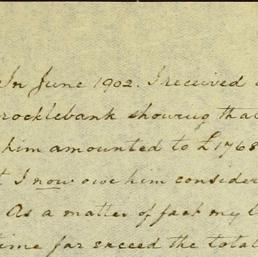 In June 1902. I received
rocklebank showing tha
him amounted to £1768
t I now owe him consider
. As a matter of fact my l
time far exceed the total